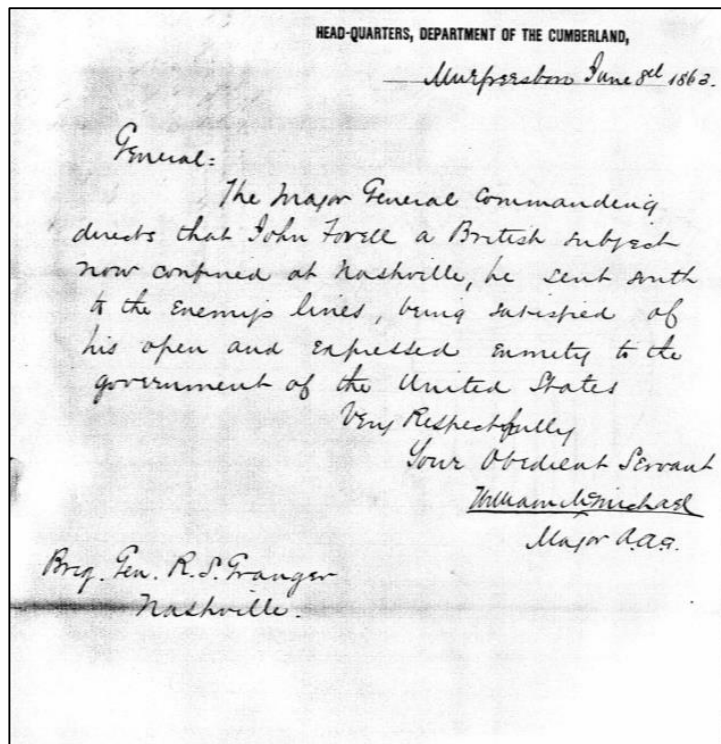 HEAD-QUARTERS, DEPARTMENT OF THE CUMBERLAND,
Murfreesboro June 8th 1863.
General:
The Major General Commanding
directs that John Fovell a British subject
now confined at Nashville, be sent south
to the Enemy's lines, being satisfied of
his open and expressed enmity to the
government of the United States
Very Respectfully
Your Obedient Servant
William McMichael
Major A.A.G.
Brig. Gen. R. S. Granger
Nashville.